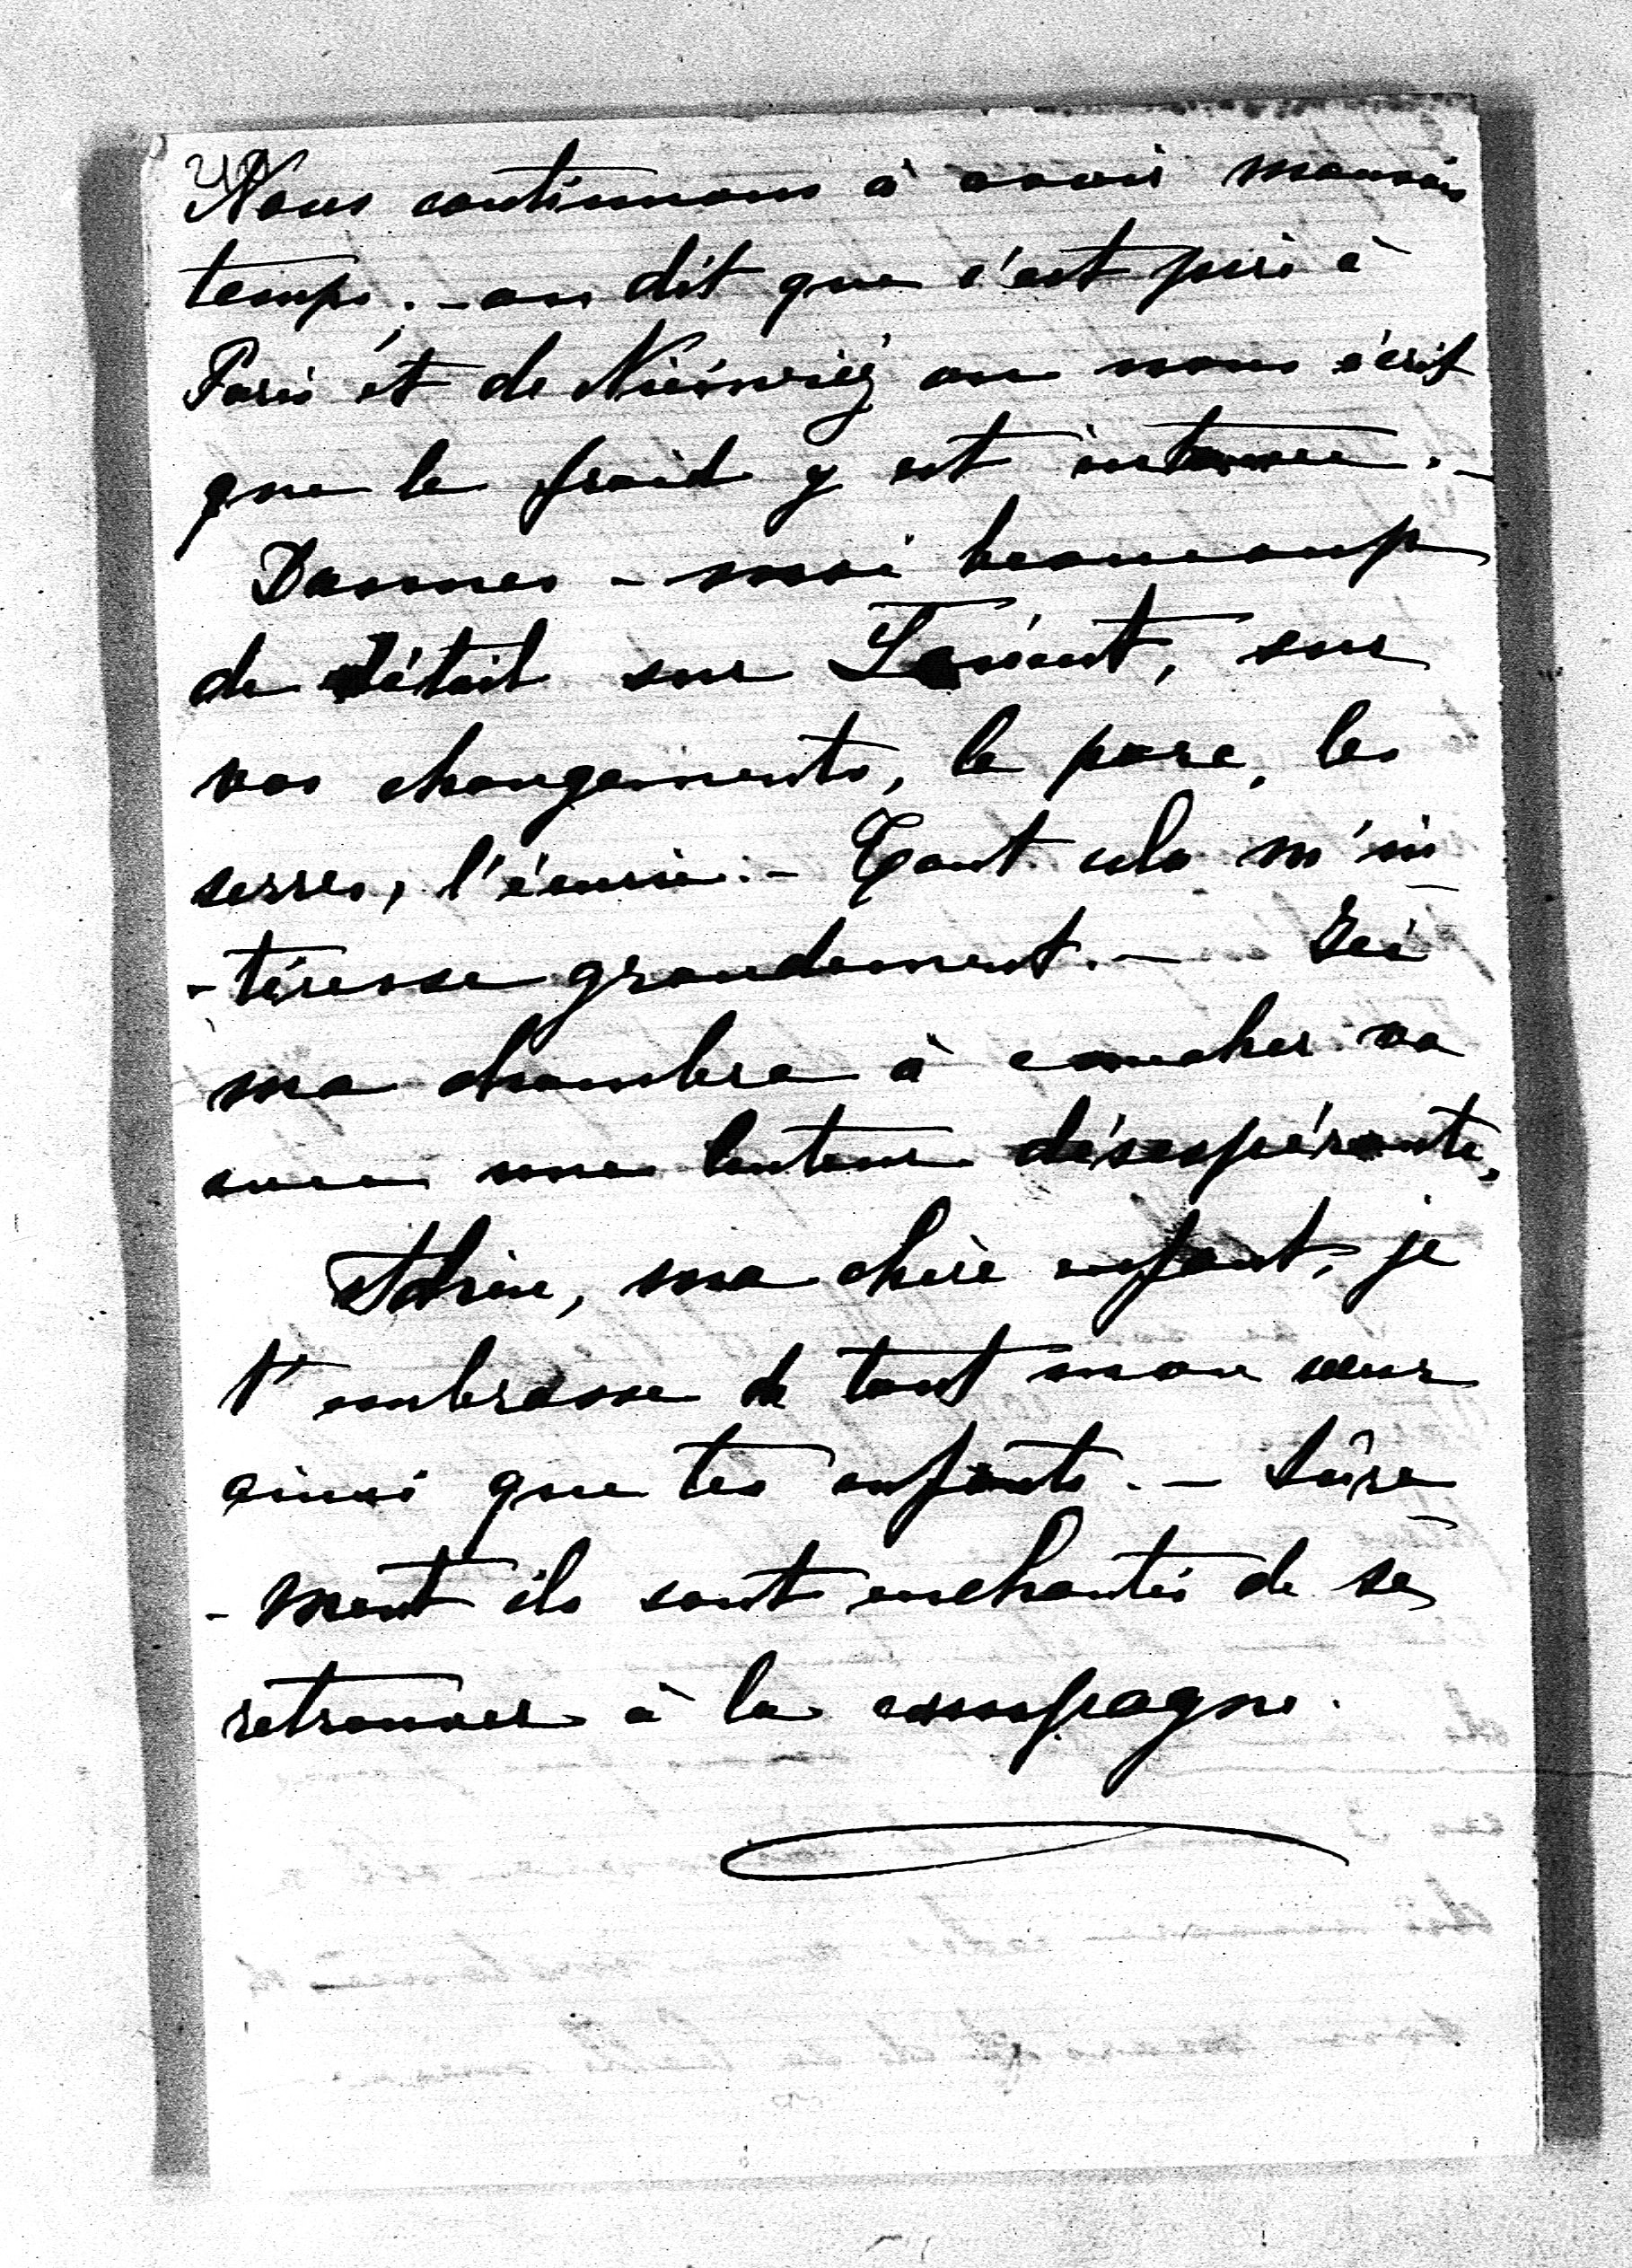 Nous continuons à avoir mauvais
temps; - on dit que c'est pire à
Paris et de Nieśwież on nous écrit
que le froid y est intense. -
Donnes-moi beaucoup
de détail sur Łańcut, sur
vos changements, le parc, les
serres, l'écurie. - Tout cela m'in
-téresse grandement. - Ici
ma chambre à coucher va
avec une lenteur désespérante,
Adieu, ma chère enfant, je
t'embrasse de tout mon cœur
ainsi que tes enfants. - Sûre
-ment ils sont enchantés de se
retrouver à la campagne.